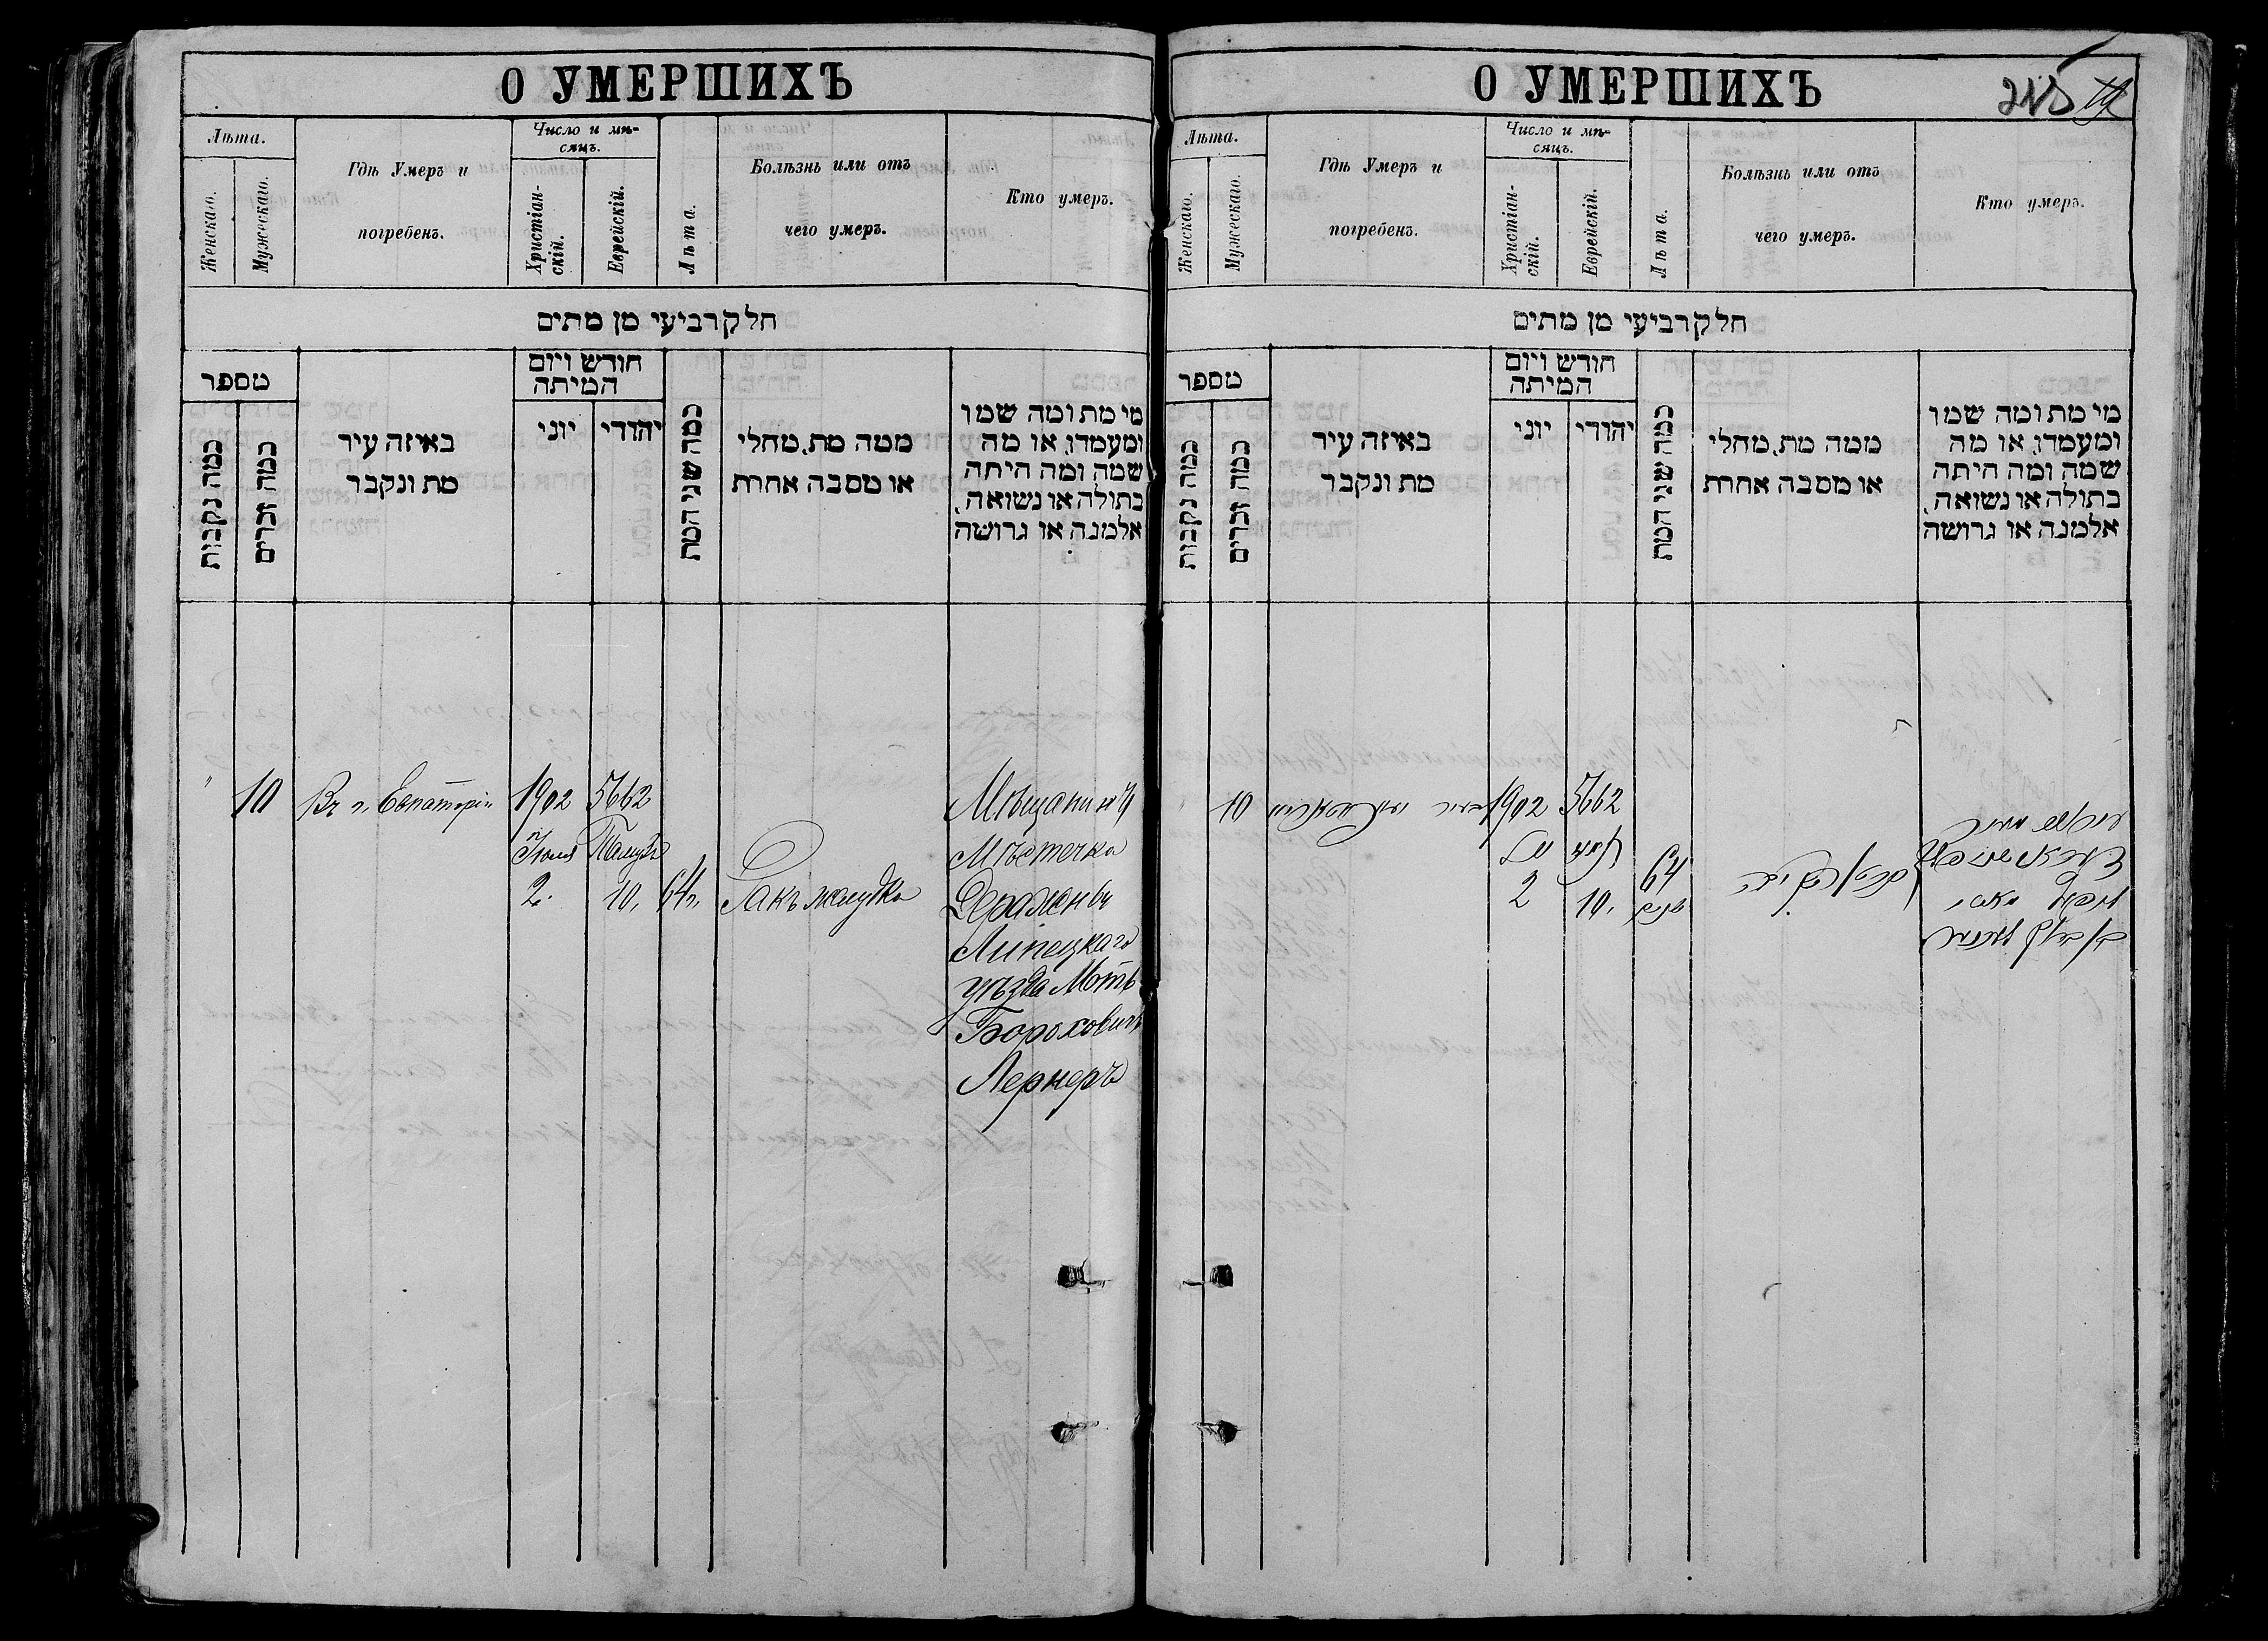 О УМЕРШИХЪ
Лѣта.
Женскаго.
Мужескаго.
Гдѣ Умеръ и
погребенъ.
Число и мѣ-
сяцъ.
Христіан-
скій.
Еврейскій.
Лѣта.
Болѣзнь или отъ
чего умеръ.
Кто умеръ.
חלק רביעי מן מתים
מספר
כמה נקבות
כמה זכרים
באיזה עיר
מת ונקבר
חודש ויום
המיתה
יוני
יהודי
כמה שני המת
ממה מת, מחלי
או מסבה אחרת
מי מת ומה שמו
ומעמדו, או מה
שמה ומה היתה
בתולה או נשואה,
אלמנה או גרושה
" 10 Въ г. Евпаторіи 1902 5662 Мѣщанинъ
Іюля Тамузъ Мѣстечка
2. 10. 64 л. Ракъ желудка
Липецкаго
уѣзда Моть
Борохович
Лернеръ
О УМЕРШИХЪ
215
Лѣта.
Женскаго.
Мужескаго.
Гдѣ Умеръ и
погребенъ.
Число и мѣ-
сяцъ.
Христіан-
скій.
Еврейскій.
Лѣта.
Болѣзнь или отъ
чего умеръ.
Кто умеръ.
חלק רביעי מן מתים
מספר
כמה נקבות
כמה זכרים
באיזה עיר
מת ונקבר
חודש ויום
המיתה
יוני
יהודי
כמה שני המת
ממה מת, מחלי
או מסבה אחרת
מי מת ומה שמו
ומעמדו, או מה
שמה ומה היתה
בתולה או נשואה,
אלמנה או גרושה
" 10 1902 5662
64
2 10.